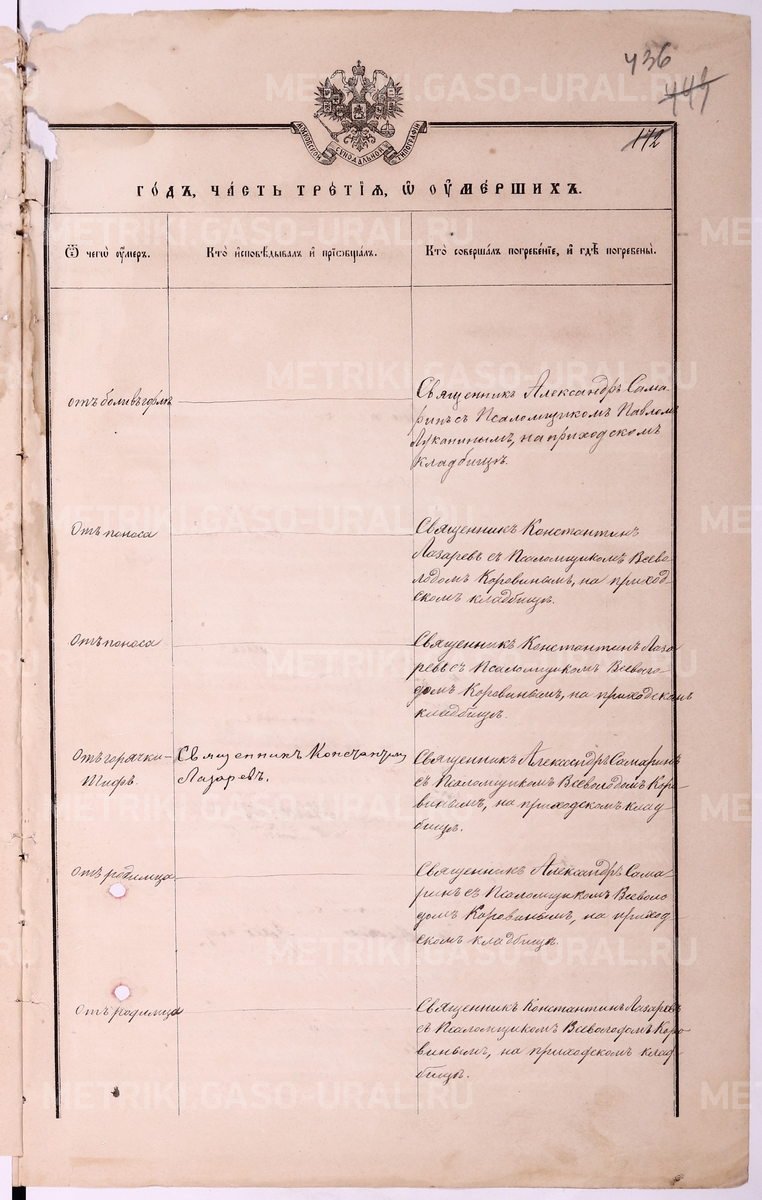 436
444
172
МОСКОВСКОЙ СѴНОДАЛЬНОЙ ТИПОГРАФІИ
ГО́ДЪ, ЧА́СТЬ ТРЕ́ТІѦ, Ѡ҆ ОУ҆МЕ́РШИХЪ.
Ѿ чегѡ̀ оу҆́меръ.
Кто̀ и҆сповѣ́дывалъ и҆ прїѡбща́лъ.
Кто̀ соверша́лъ погребе́нїе, и҆ гдѣ̀ погребены̀.
отъ боли въ горлѣ
Священникъ Александръ Сама-
ринъ съ Псаломщикомъ Павломъ
на приходскомъ
кладбищѣ.
Отъ поноса
Священникъ Константинъ
Лазаревъ съ Псаломщикомъ Всево-
лодомъ Коровинымъ, на приход-
скомъ кладбищѣ.
Отъ поноса
Священникъ Константинъ Лаза-
ревъ съ Псаломщикомъ Всеволо-
домъ Коровинымъ, на приходскомъ
кладбищѣ.
Отъ горячки-
Тифъ.
Священникъ Константинъ
Лазаревъ.
Священникъ Александръ Самаринъ
съ Псаломщикомъ Всеволодомъ Коро-
винымъ, на приходскомъ клад-
бищѣ.
Отъ родимца
Священникъ Александръ Сама-
ринъ съ Псаломщикомъ Всеволо-
домъ Коровинымъ, на приход-
скомъ кладбищѣ.
Отъ родимца
Священникъ Константинъ Лазаревъ
съ Псаломщикомъ Всеволодомъ Коро-
винымъ, на приходскомъ клад-
бищѣ.
METRIKI.GASO-URAL.RU
METRIKI.GASO-URAL.RU
METRIKI.GASO-URAL.RU
METRIKI.GASO-URAL.RU
METRIKI.GASO-URAL.RU
METRIKI.GASO-URAL.RU
METRIKI.GASO-URAL.RU
METRIKI.GASO-URAL.RU